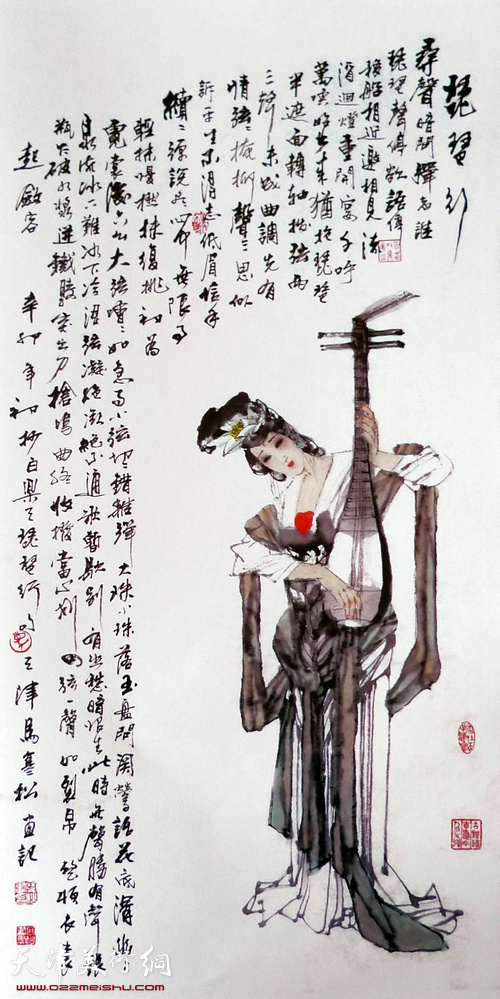 琵琶行
尋聲暗問彈者誰
琵琶聲停欲語遲
移船相近邀相見 添
酒迴燈重開宴 千呼
萬喚始出來 猶抱琵琶
半遮面 轉軸撥弦兩
三聲 未成曲調先有
情 弦弦掩抑聲聲思 似
訴平生不得志 低眉信手
續續彈 說盡心中無限事
輕攏慢撚抹復挑 初為
霓裳後六幺 大弦嘈嘈如急雨 小弦切切錯雜彈 大珠小珠落玉盤 間關鶯語花底滑 幽咽
泉流冰下難 冰下冷澀弦凝絕 凝絕不通聲暫歇 別有幽愁暗恨生 此時無聲勝有聲 銀
瓶乍破水漿迸 鐵騎突出刀槍鳴 曲終收撥當心劃 四弦一聲如裂帛 整頓衣裳
起斂容
辛卯年初抄白樂天琵琶行句 天津馬寒松 記
天津美術網
www.022meishu.com